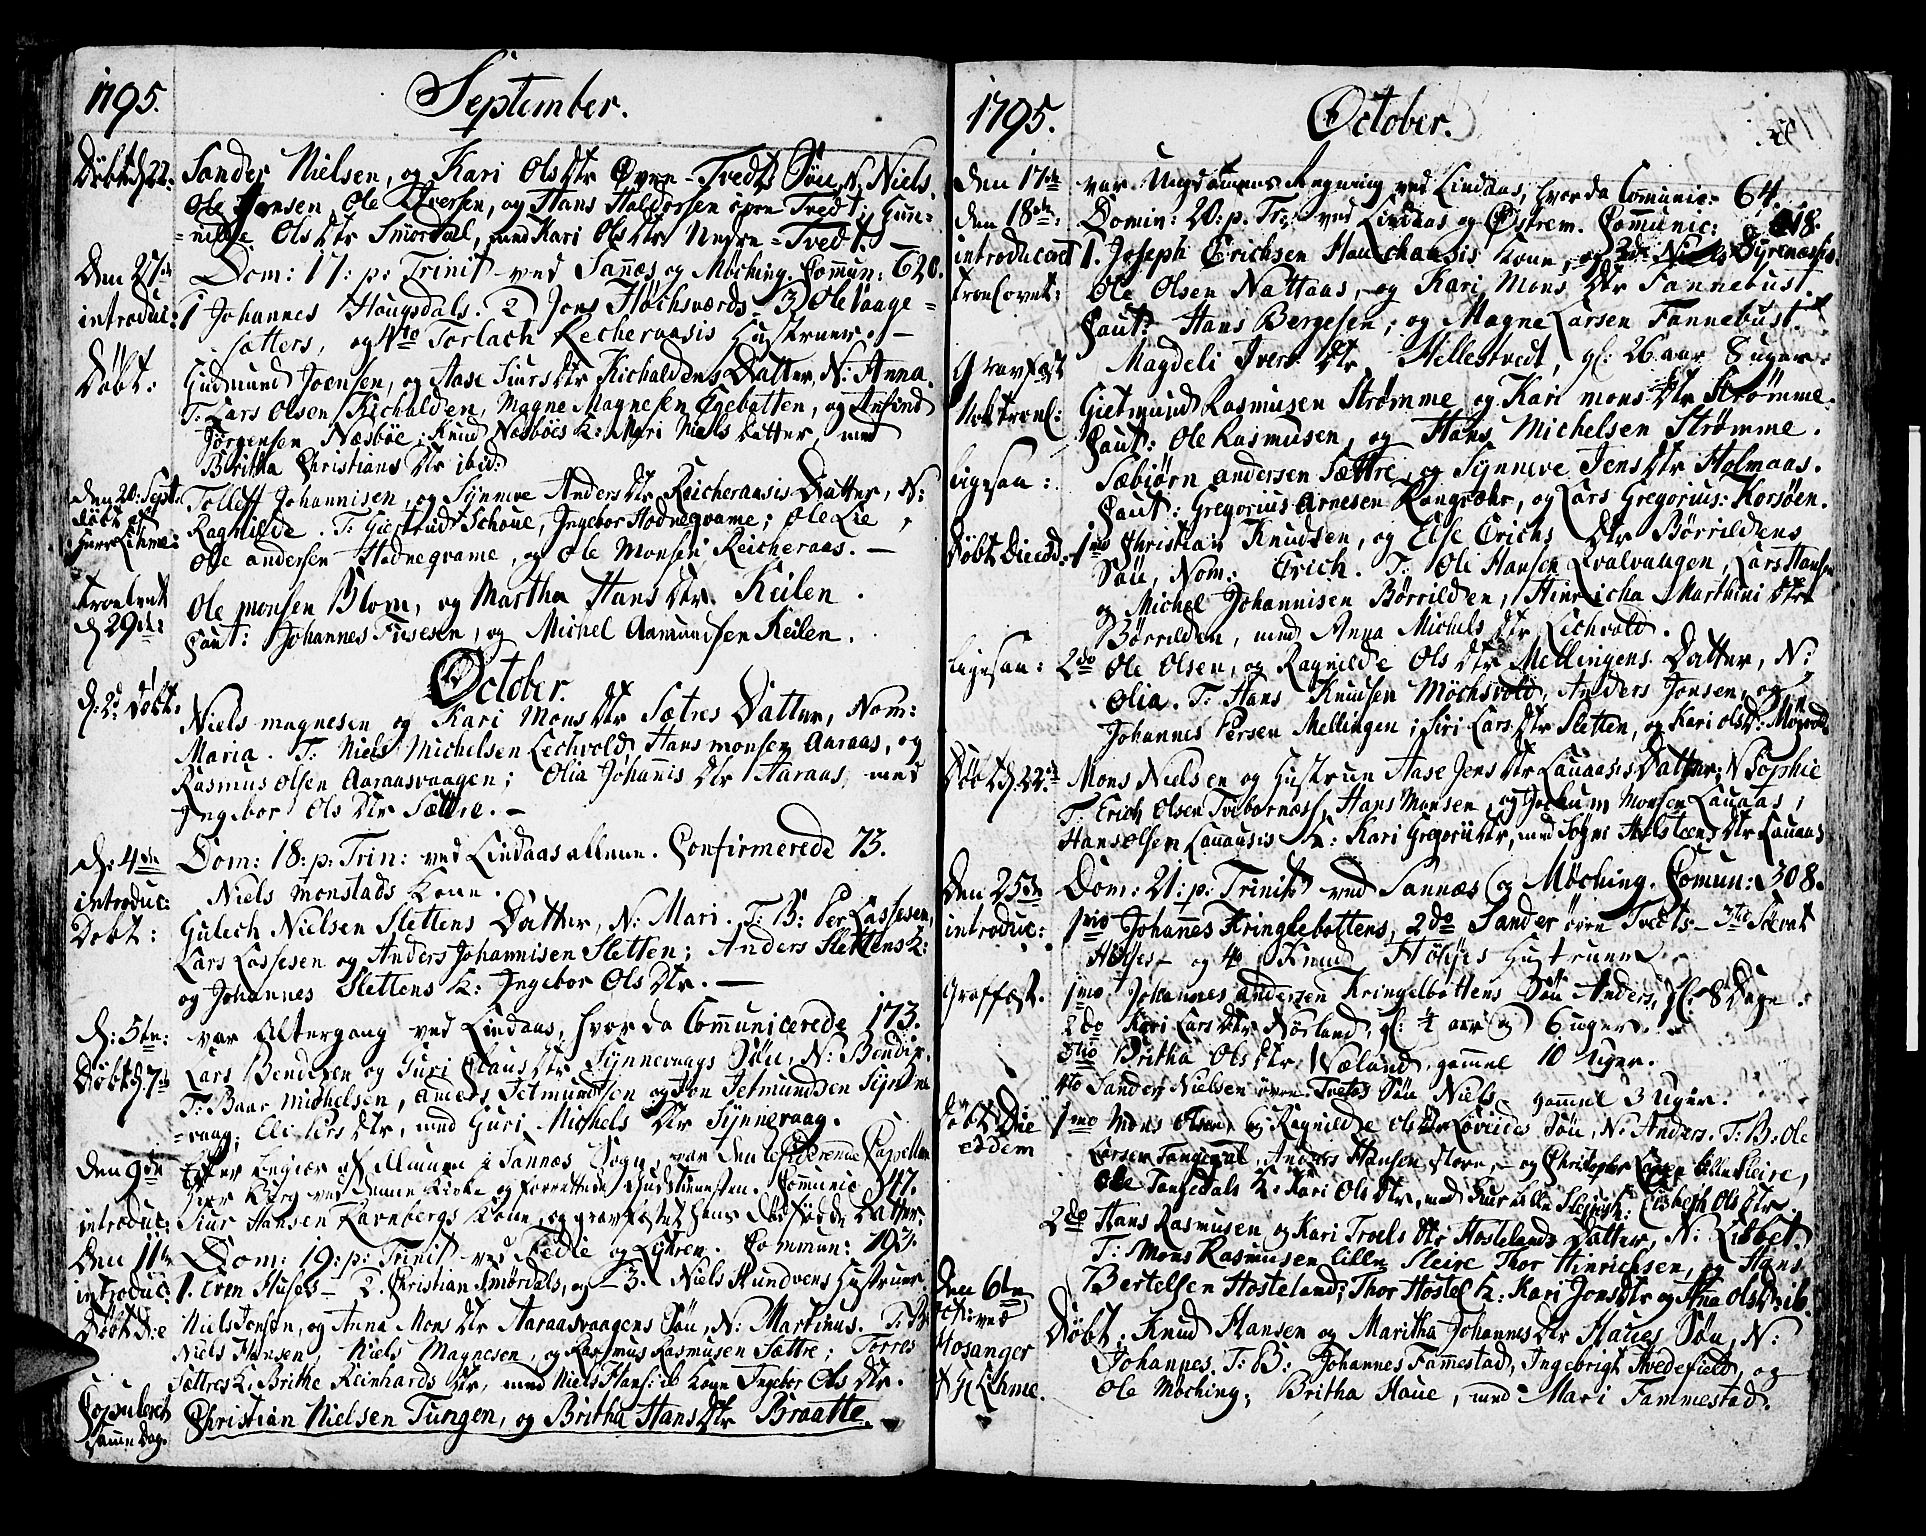 1795. September.
Döbt d 22: Sander Nielsen, og Kari Ols Dtr Øvre-Tvedts Søn, N. Niels.
Ole Jonsen, Ole Iversen, og Hans Haldorsen øvre Tvedt; Gun=
=nilde Ols Dtr Smördal, med Kari Ols Dtr Nedre-Tvedt. —
Den 27de Dom: 17: p: Trinit ved Sannæs og Möching. Commun: 620.
introduc: 1 Johannes Hougsdals. 2 Jens Höchsværds 3 Ole Vaage=
=sætters, og 4to Torlach Recheraasis Hustruer. —
Döbt: Gudmund Joensen, og Aase Siurs Dtr Kichaldens Datter, N: Anna.
T: Lars Olsen Kichalden, Magne Magnesen Egebotten, og Anfind
Jörgensen Næsböe; Knud Næsböes K: Mari Niels Datter, med
Britha Christians Dtr ibid:
den 20: Sept: Tolleff Johannisen, og Synneve Anders Dtr Reicheraasis Datter, N:
döbt af Ragnilde. T: Giertrud Schoue, Ingebor Hodneqvame; Ole Lie,
Herr Lihme: Ole Andersen Hodneqvame, og Ole Monsen Reicheraas. —
Troelovet Ole Monsen Blom, og Martha Hans Dtr Keilen.
d 29de: Caut: Johannes Knudsen, og Michel Aamundsen Keilen.
October.
d: 2. Döbt. Niels Magnesen og Kari Mons Dtr Sætres Datter, Nom:
Maria. T: Niels Michelsen Lechvold, Hans Monsen Aaraas, og
Rasmus Olsen Aaraasvaagen; Olia Johannis Dtr Aaraas, med
Ingebor Ols Dtr Sættre. —
d: 4de Dom: 18: p: Trin: ved Lindaas allene. Confirmerede 73.
introduc: Niels Monstads Kone.
Döbt: Gulech Nielsen Slettens Datter, N: Mari. T: B: Per Lassesen,
Lars Lassesen og Anders Johannisen Sletten; Anders Slettens K:
og Johannes Slettens K: Ingebor Ols Dtr. —
d: 5te: var Altergang ved Lindaas, hvor da Communicerede 173.
Döbt d. 7de Lars Bendixen og Guri Claus Dtr Synnevaags Søn, N: Bendix.
T: Baar Michelsen, Amund Jetmundsen og Jon Jetmundsen Synne=
=vaag; Pers Dtr, med Guri Michels Dtr Synnevaag.
Den 9de Efter Begiær af Almuen i Sannæs Sogn, var den residerende Capellan
Herr Krog ved denne Kirke og forrettede Gudstienesten. Communic 47.
introduc: Siur Hansen Ravnbergs Kone, og gravfæstet hans dødfödde Datter.
Den 11te Dom: 19: p: Trinit ved Fedie og Lykren. Commun: 193.
introduc: 1. Even Huses — 2. Christian Smördals, og — 3. Niels Rundvens Hustruer
Döbt Die Niels Jonsen, og Anna Mons Dtr Aaraasvaagens Søn, N: Martinus. T: B:
Niels Hansen Niels Magnesen, og Rasmus Rasmusen Sættre; Torres
Sættres K: Brithe Reinhards Dtr, med Niels Hans: ib Kone Ingebor Ols Dtr.
Copuleret Christian Nielsen Tungen, og Britha Hans Dtr Braatte.
samme Dag.
1795. October.
Den 17de var Ungdommens Regning ved Lindaas, hvor da Comunic: 64.
Den 18de: Domin: 20: p: Tr: ved Lindaas og Østrem. Communic: 218.
introduceret 1. Joseph Erichsen Hauchaasis Kone, og 2de Niels Syrenæssis.
Troelovet: Ole Olsen Nattaas, og Kari Mons Dtr Fannebust.
Caut: Hans Bergesen, og Magne Larsen Fannebust.
Gravfæst Magdeli Ivers Dtr Hillestvedt, gl: 26 aar 8 uger.
Nok Troel: Gietmund Rasmusen Strømme og Kari Mons Dtr Strømme.
Caut: Ole Rasmusen, og Hans Michelsen Strømme.
ligesaa: Sæbiörn Andersen Sættre, og Synneve Jens Dtr Holmaas.
Caut: Gregorius Arnesen Rongvær, og Lars Gregorius: Korsøen.
Döbt Die ed: 1mo Christian Knudsen, og Else Erichs Dtr Börrildens
Søn, Nom: Erich. T: Ole Hansen Qvalvaagen, Lars Hansen
og Michel Johannisen Börrilden; Hinricha Marthini Dtr
Börrilden, med Anna Michels Dtr Lechvold.
ligesaa: 2do Ole Olsen, og Ragnilde Ols Dtr Mellingens Datter, N:
Olia. T: Hans Knudsen Möchsvold, Anders Jonsen, og
Johannes Persen Mellingen; Siri Lars Dtr Sletten, og Kari Ols D: Møxvold.
Döbt d: 22de Mons Nielsen og Hustrue Aase Jens Dtr Lauaasis Datter; N: Sophie
T: Erich Olsen Tvebornæss, Hans Monsen, og Jochum Monsen Lauaas;
Hans Olsen Lauaasis K: Kari Gregorii Dtr, med Sygni Halsteens Dtr Lauaas
Den 25de Dom: 21: p: Trinit ved Sannæs og Möching. Comun: 308.
introduc: 1mo Johannes Kringlebottens, 2do Sander øvre Tvedts — 3tio Sievat
Höljes — og 4to Knud Höljes Hustruer.
Graffæst. 1mo Johannes Andersen Kringelbottens Søn Anders, gl: 8 Dage.
2do Kari Lars Dtr Nørland, gl: ¼ aar og 6 uger. —
3tio Britha Ols Dtr Wæland, gammel 10 Uger.
4to Sander Nielsen øvre Tvetes Søn Niels, gammel 3 Uger.
Döbt Die 1mo Mons Olsen og Ragnilde Ols Dtr Lövedes Søn, N: Anders. T: B: Ole
eodem Larsen Tangedal, Anders Hansen store — og Christopher Larsen lille Sleire,
Ole Tangedals K: Kari Ols Dtr, med Lisbeth Ols Dtr.
2do Hans Rasmusen og Kari Troels Dtr Hostelands Datter, N: Lisbet.
T: Mons Rasmusen lille Sleire Thor Hinrichsen, og Hans
Bertelsen Hosteland; Thor Hostel: K: Kari Jons Dtr og Anna Ols D: ib.
Den 6te Döbt: Knud Hansen og Maritha Johannes Dtr Haues Søn, N:
Hosanger Johannes. T: B: Johannes Famestad, Ingebrigt Hvedefield, og
H: Lihme. Ole Möching; Britha Haue, med Mari Fammestad.